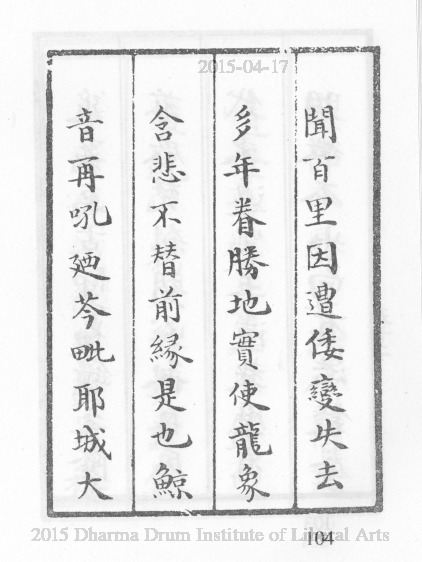 2015-04-17
聞百里因遭倭變失去
多年眷勝地實使龍象
含悲不替前緣是也鯨
音再吼廼芩毗耶城大
2015 Dharma Drum Institute of Liberal Arts
104